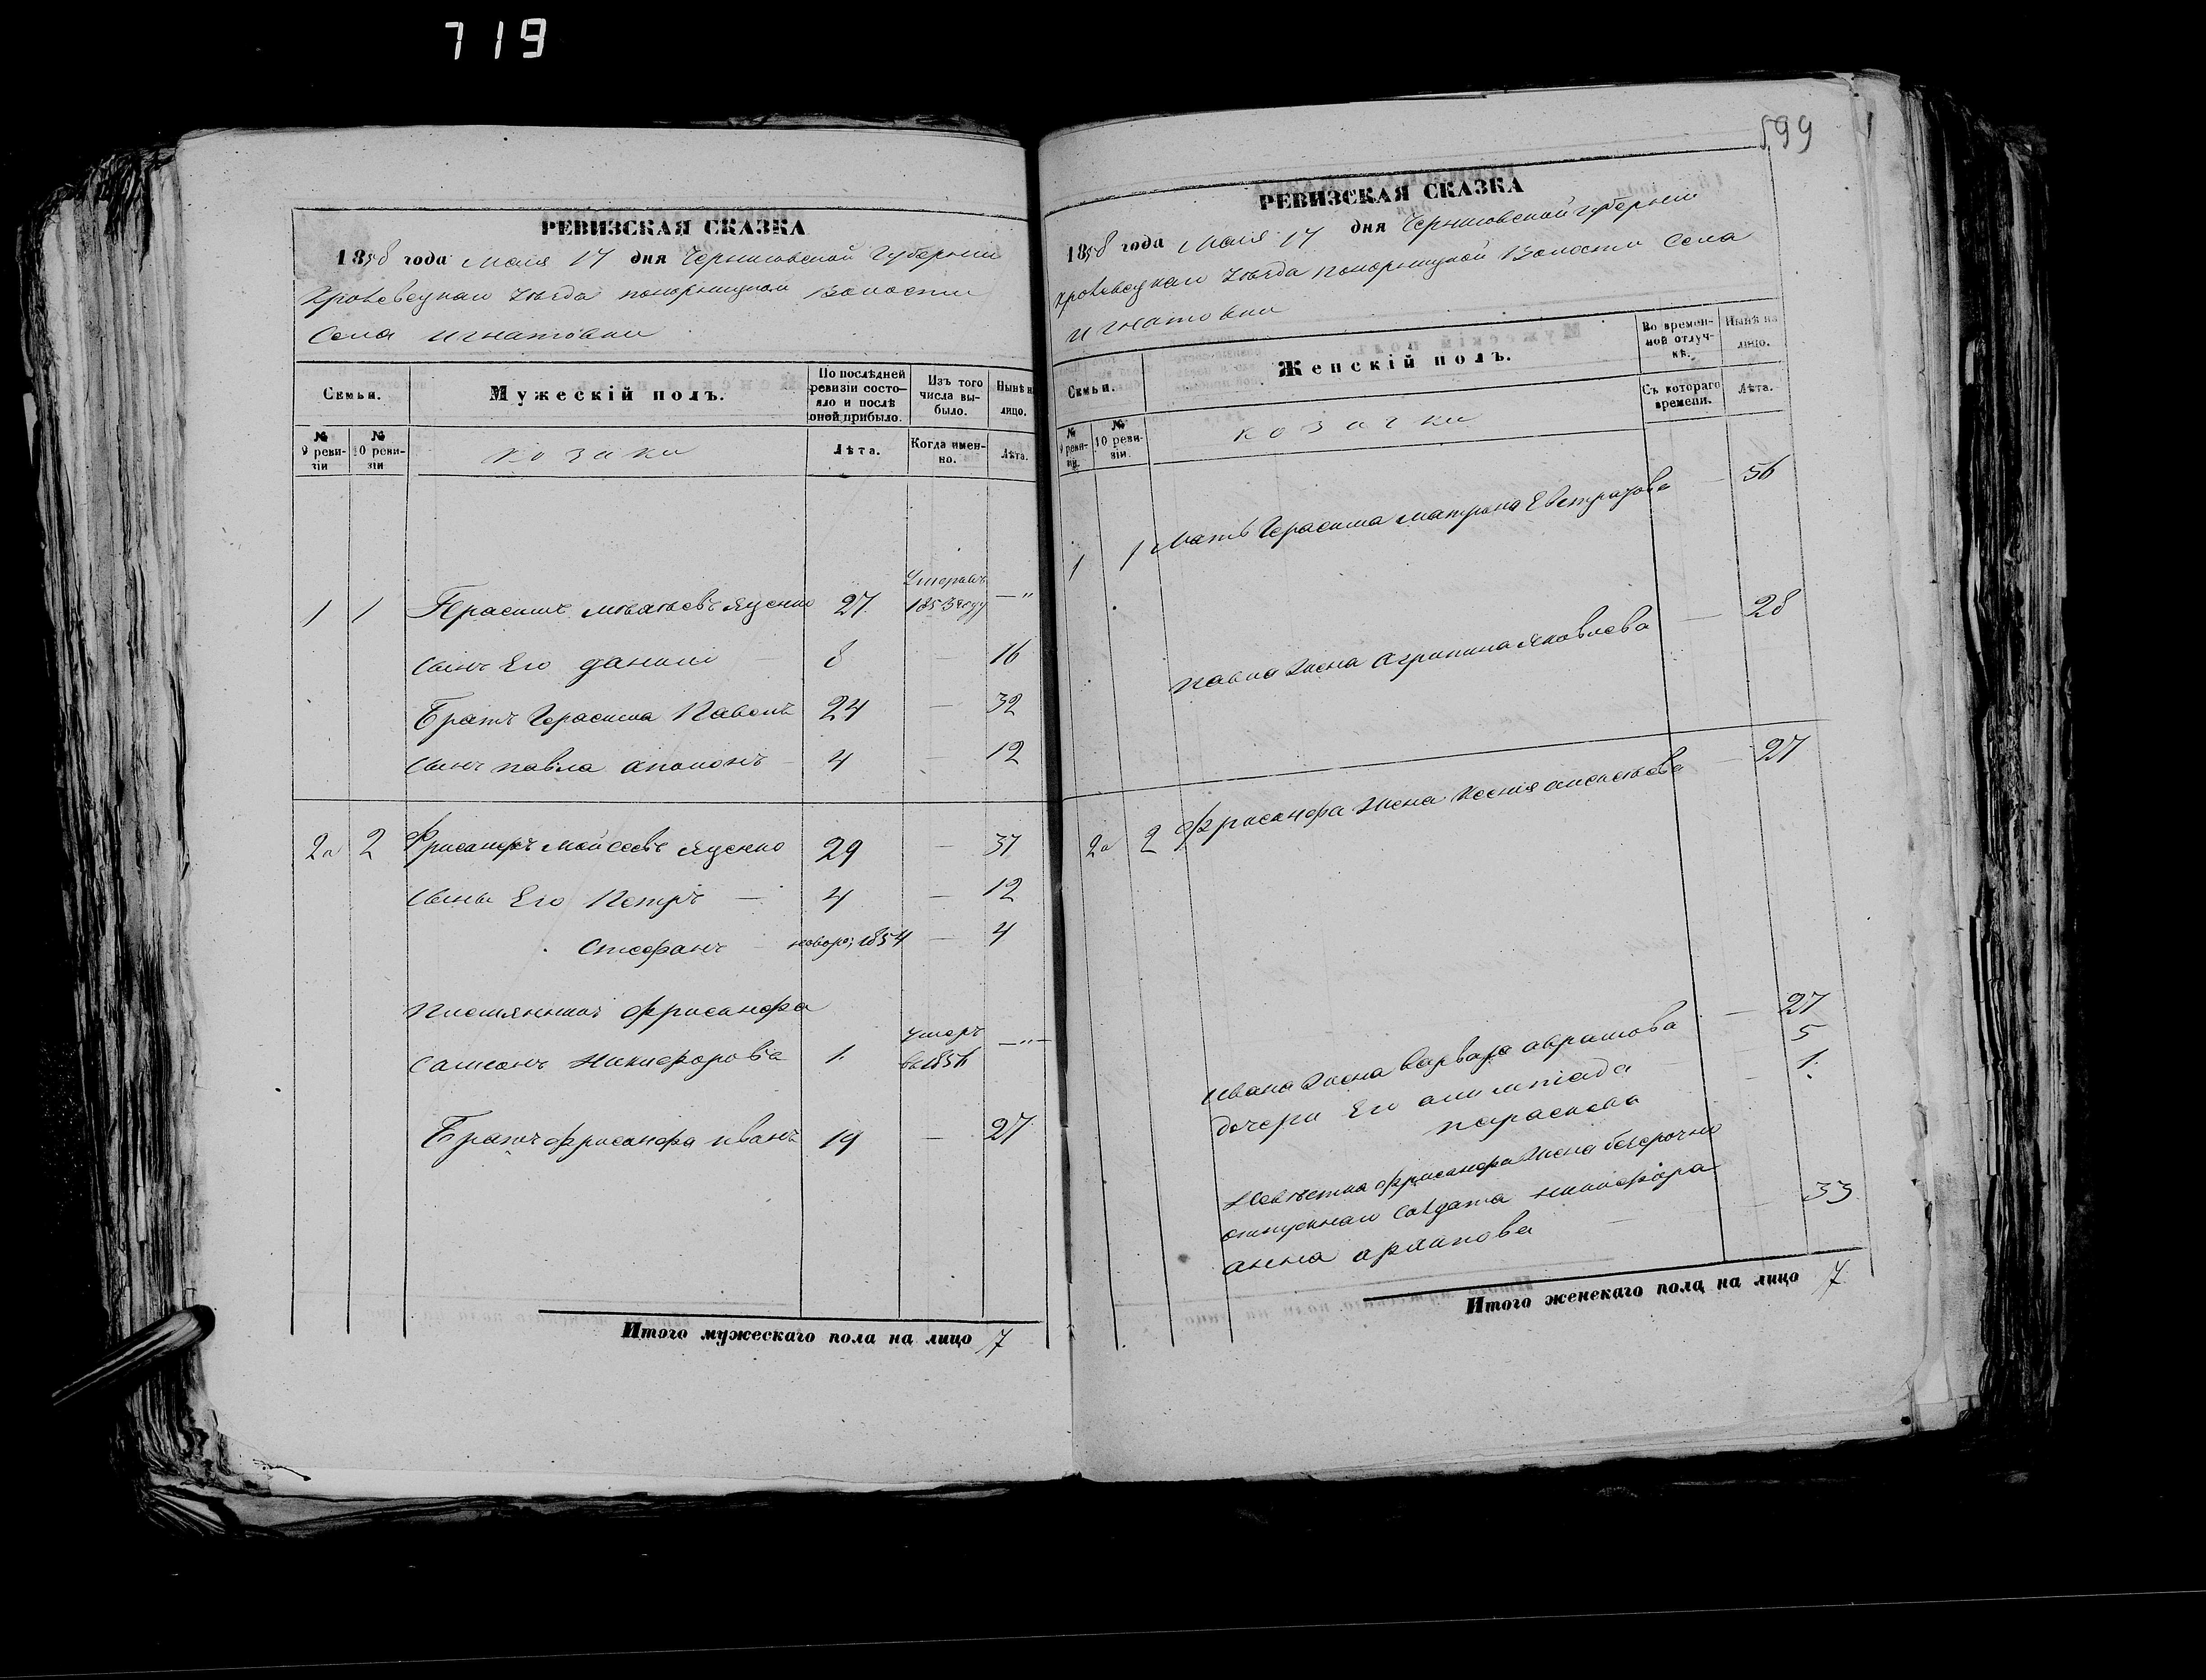 719
РЕВИЗСКАЯ СКАЗКА
1858 года Мая 17 дня Черниговской Губернии
Кролевецкаго Уезда Понорницкой Волости
Села Игнатовки
Семьи.
Мужескій полъ.
По послѣдней ревизіи состояло и послѣ оной прибыло.
Изъ того числа выбыло.
Нынѣ на лицо.
№ 9 ревизіи
№ 10 ревизіи
козаки
Лѣта.
Когда именно.
Лѣта.
1 1 Герасимъ Яценко 27 Умеръ въ 1853 году —"
Сынъ Его Данило 8 — 16
Братъ Герасима Павелъ 24 — 32
Сынъ Павла 4 — 12
2 2 Фрисанфъ Мойсеевъ Яценко 29 — 37
Сыны Его Петръ — 4 — 12
Стефанъ новоро; 1854 — 4
Племянникъ Фрисанфа
Самсонъ Никифоровъ 1 Умеръ —"—
Братъ Фрисанфа Иванъ 19 — 27
Итого мужескаго пола на лицо 7
599
РЕВИЗСКАЯ СКАЗКА
1858 года Мая 17 дня Черниговской губернии
Кролевецкаго Уезда Понорницкой Волости Села
Игнатовки
Семьи.
Женскій полъ.
Во временной отлучкѣ.
Нынѣ на лицо.
№ 9 ревизіи.
№ 10 ревизіи.
козачки
Съ котораго времени.
Лѣта.
1 1 Мать Герасима Матрона — 56
Павла Жена Агрипина Яковлева — 28
2 2 Фрисанфа Жена Ксенія Алексѣева — 27
Ивана Жена Варвара Аврамова — 27
дочери Его Олимпіада 5
Параскева — 1
Невѣстка Фрисанфа Жена безсрочно
отпускнаго Солдата Никифора
Анна 33
Итого женскаго пола на лицо 7